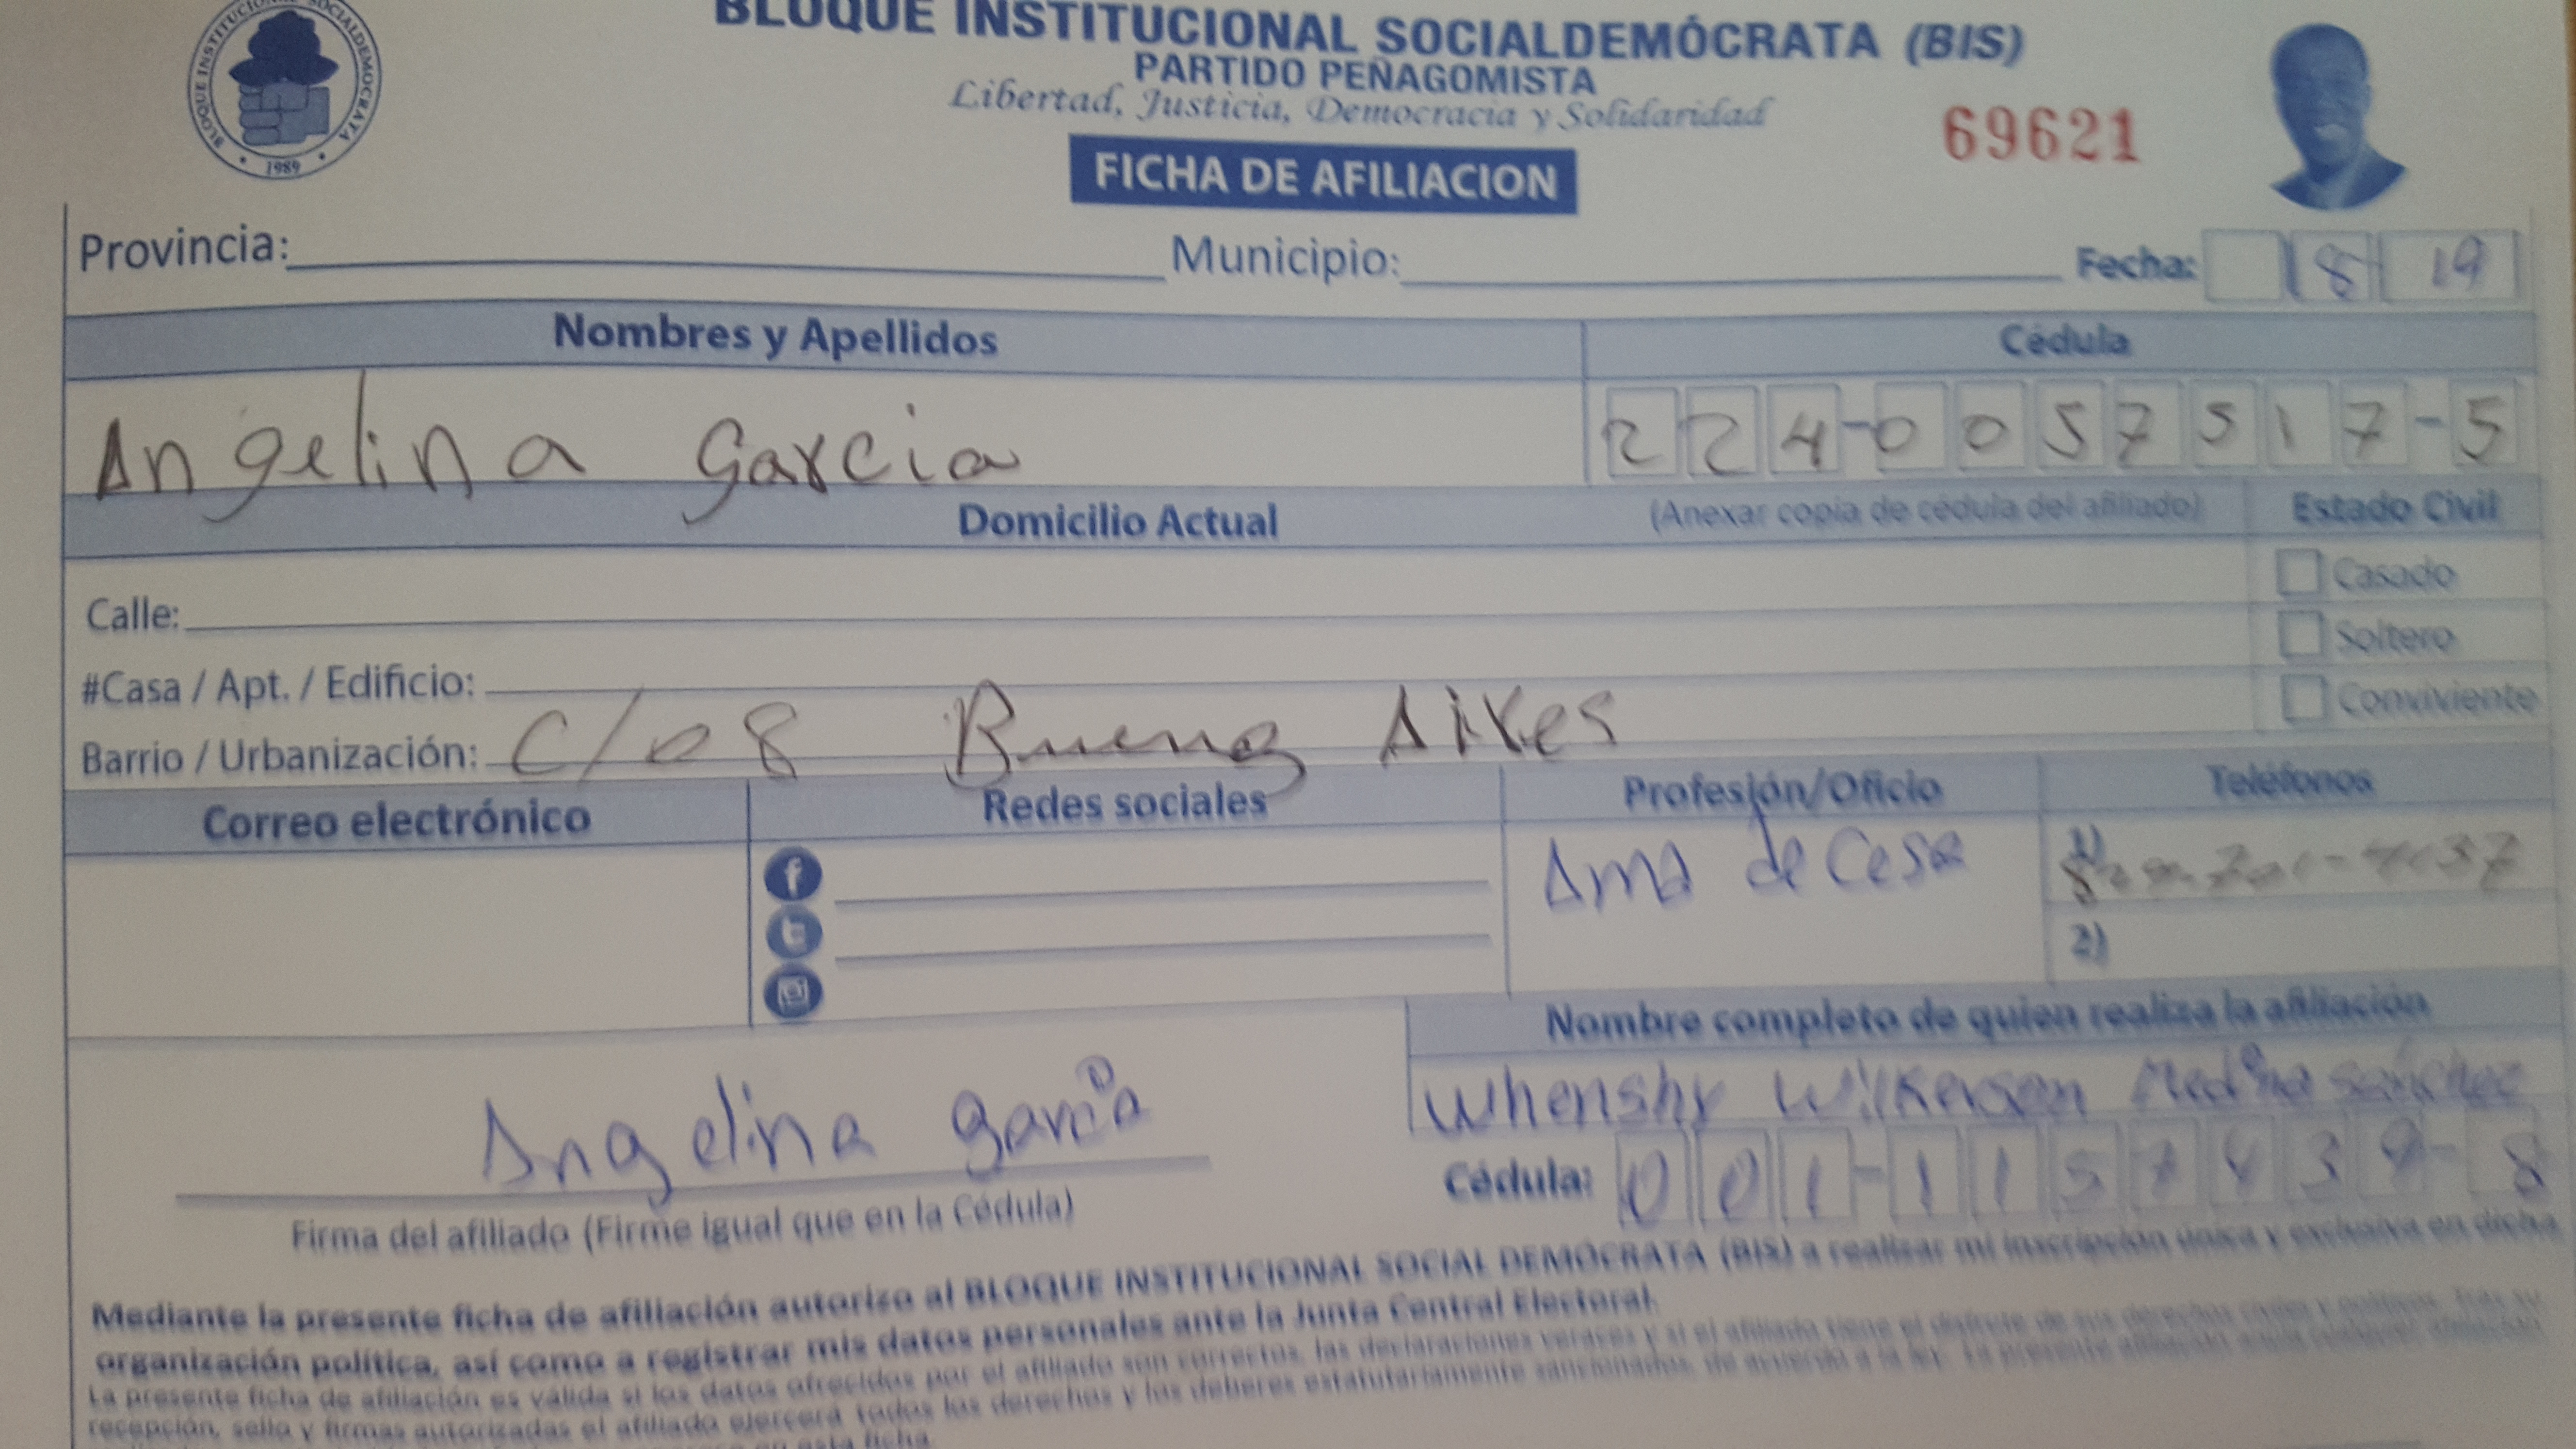 BLOQUE INSTITUCIONAL SOCIALDEMÓCRATA (BIS)
PARTIDO PEÑAGOMISTA
Libertad, Justicia, Democracia y Solidaridad
BLOQUE INSTITUCIONAL SOCIALDEMOCRATA
1989
69621
FICHA DE AFILIACION
Provincia: Municipio: Fecha: 8 19
Nombres y Apellidos Cédula
Angelina Garcia 224-0057517-5
Domicilio Actual (Anexar copia de cédula del afiliado) Estado Civil
Casado
Calle:
Soltero
#Casa / Apt. / Edificio:
Conviviente
Barrio / Urbanización: C/08 Buenos Aires
Correo electrónico Redes sociales Profesión/Oficio Teléfonos
Ama de Casa 1)
2)
Nombre completo de quien realiza la afiliación
Whenshy Wilkerson Medina Sánchez
Angelina garcia
Cédula: 001-11578 3 - 8
Firma del afiliado (Firme igual que en la Cédula)
Mediante la presente ficha de afiliación autorizo al BLOQUE INSTITUCIONAL SOCIAL DEMÓCRATA (BIS) a realizar mi inscripción única y exclusiva en dicha
organización política, así como a registrar mis datos personales ante la Junta Central Electoral.
La presente ficha de afiliación es válida si los datos ofrecidos por el afiliado son correctos, las declaraciones veraces y si el afiliado tiene el disfrute de sus derechos civiles y políticos. Tras su
recepción, sello y firmas autorizadas el afiliado ejercerá todos los derechos y los deberes estatutariamente sancionados, de acuerdo a la ley. La presente afiliación
en esta ficha